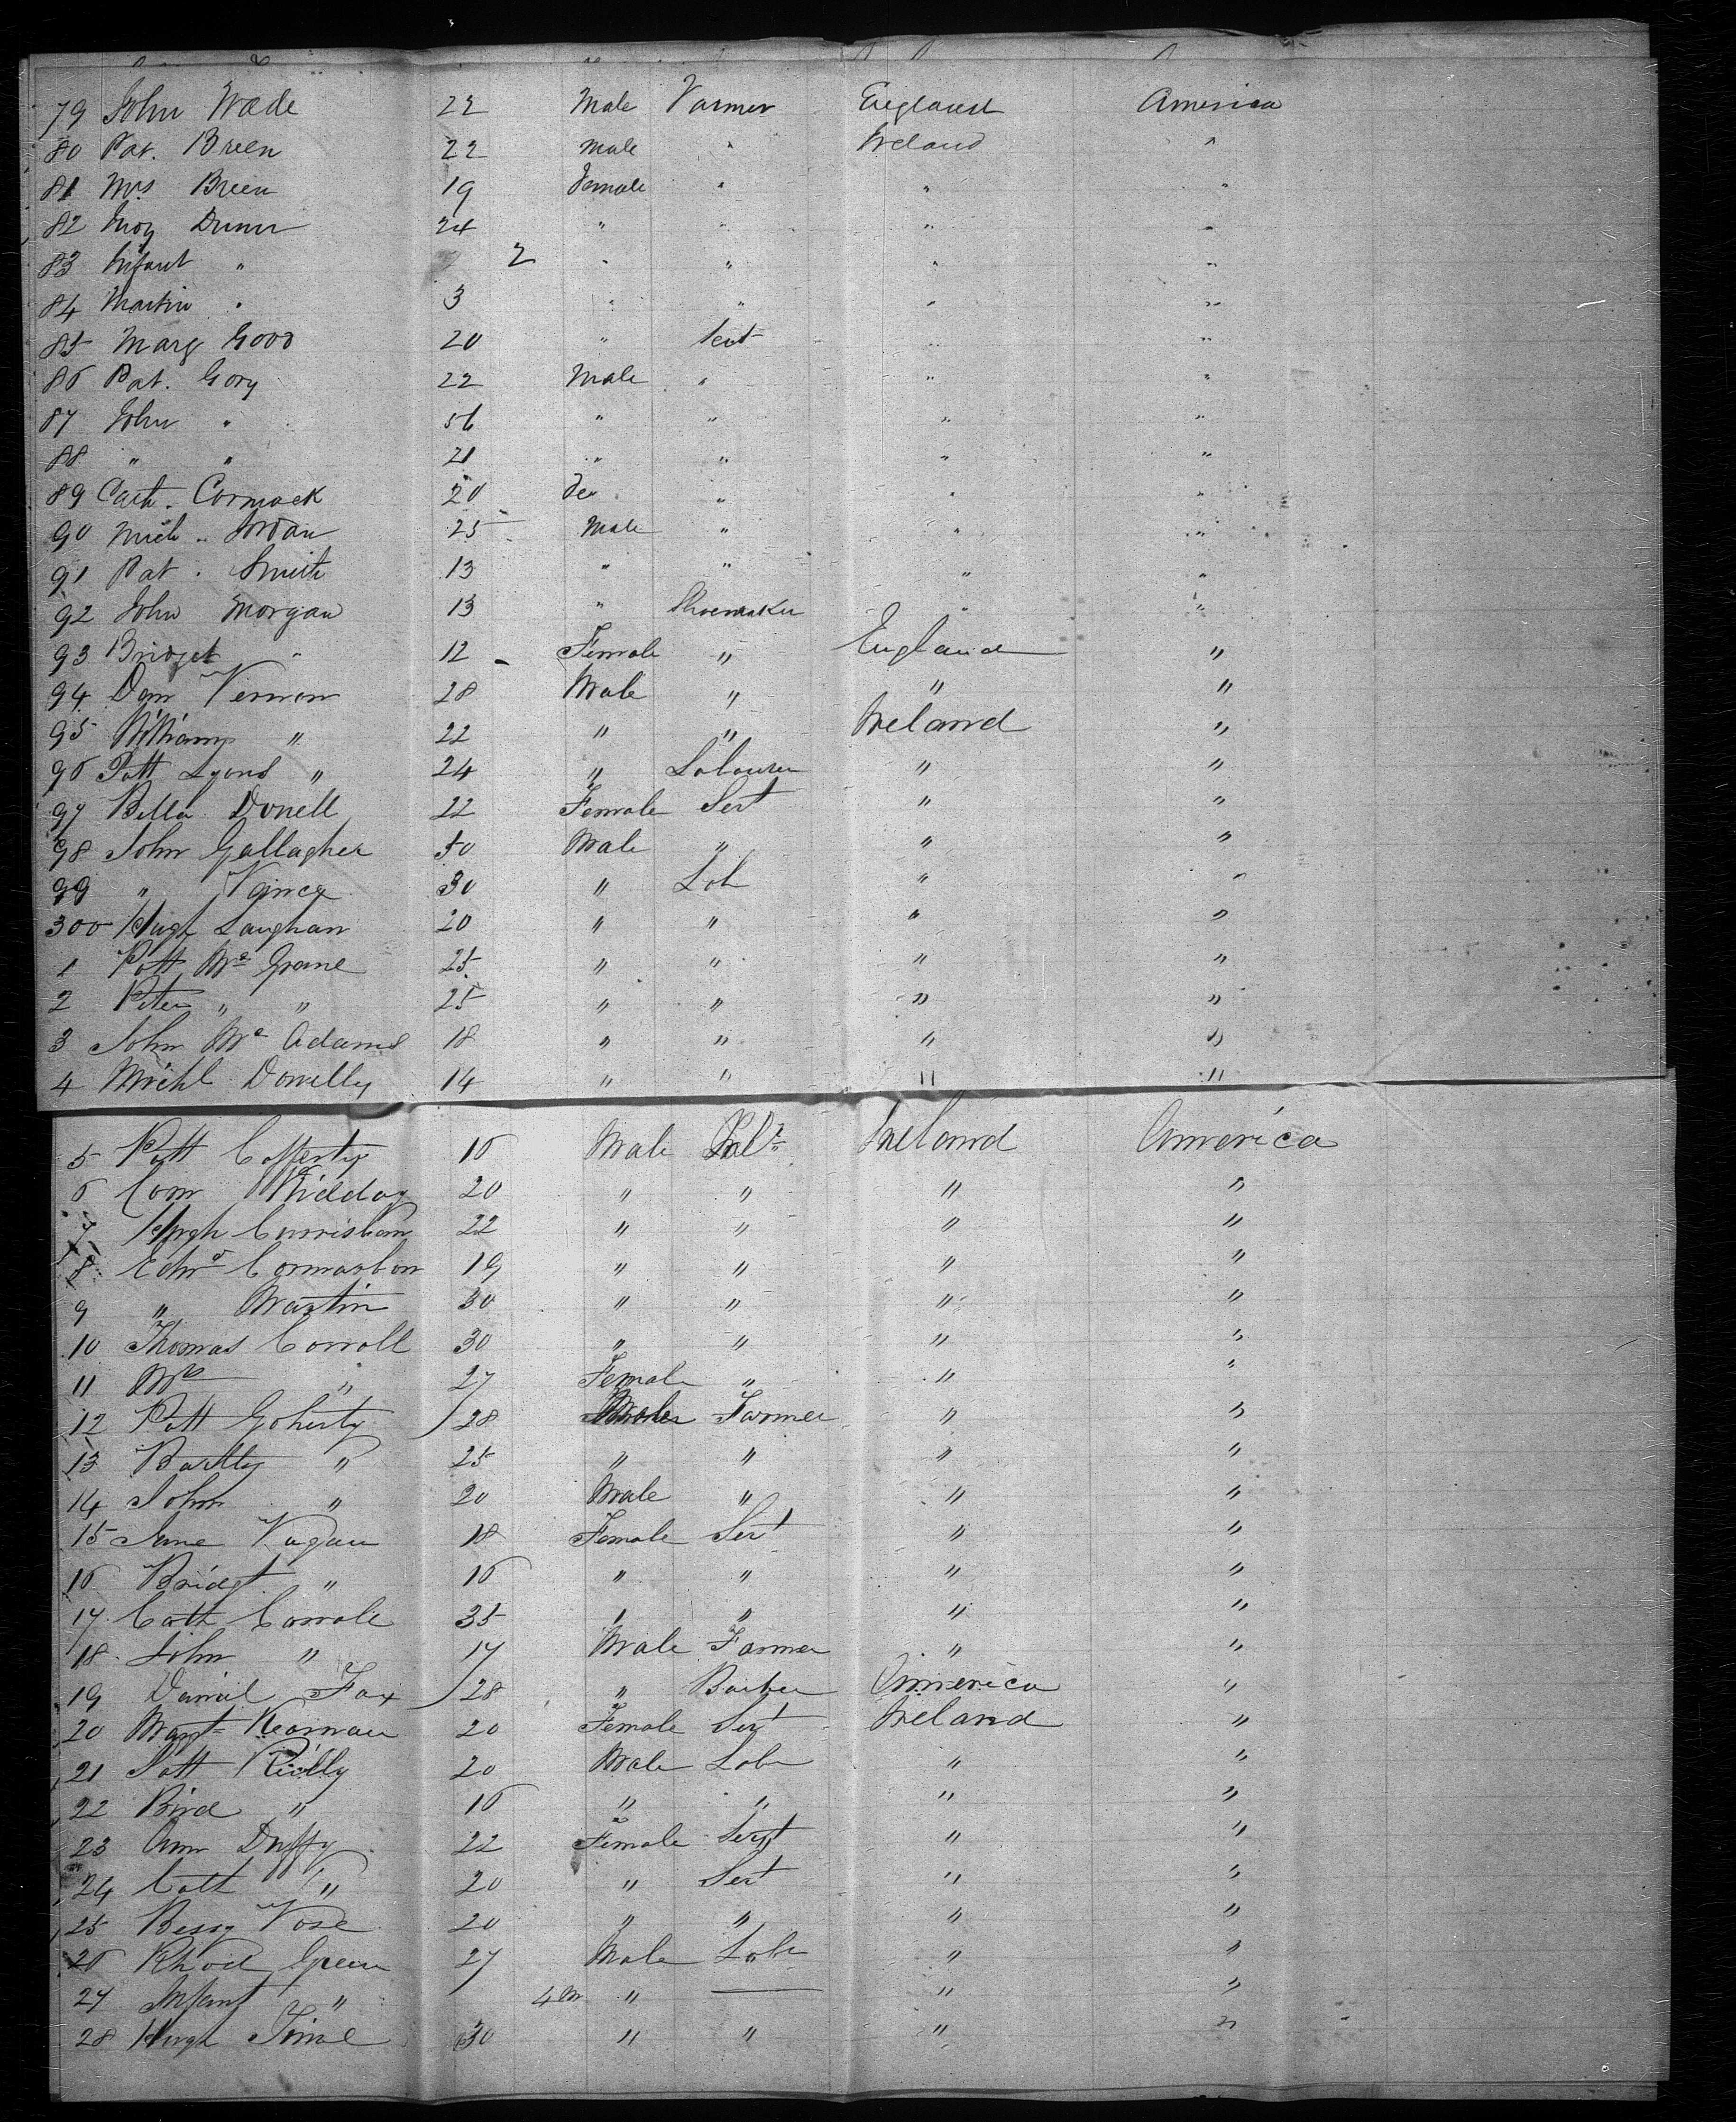 79 John Wade 22 Male Farmer England America
80 Pat. Breen 22 Male " Ireland "
81 Mrs Breen 19 Female " " "
82 Dunn 24 " " " "
83 Infant " 2 " " " "
84 Martin " 3 " " " "
85 Marg Good 20 " Sert " "
86 Pat. Gory 22 Male " " "
87 John " 56 " " " "
88 " " 21 " " " "
89 Cath. Cormack 20 Fe " " "
90 Mich " Jordan 25 Male " " "
91 Pat. Smith 13 " " " "
92 John Morgan 13 " Shoemaker " "
93 Bridget " 12 Female " England "
94 Dan Vernon 28 Male " " "
95 Williams " 22 " " Ireland "
96 Patt Lyons " 24 " Labourer " "
97 Bella Donell 22 Female Sert " "
98 John Gallagher 50 Male " " "
99 " 30 " Lab " "
300 Hugh Laughan 20 " " " "
1 Patt Mc Grane 25 " " " "
2 Peter " " 25 " " " "
3 John Mc Adams 18 " " " "
4 Michl Donelly 14 " " " "
5 Patt Cafferty 16 Male Labr Ireland America
6 Com 20 " " " "
7 Hugh 22 " " " "
8 Edwd 19 " " " "
9 " Martin 30 " " " "
10 Thomas Carroll 30 " " " "
11 Mrs " 27 Female " " "
12 Patt Goherty 28 Male Farmer " "
13 Bartly " 25 " " " "
14 John " 20 Male " " "
15 Jane Vagan 18 Female Sert " "
16 Bridgt " 16 " " " "
17 Cath Carrole 35 " " " "
18 John " 17 Male Farmer " "
19 Daniel Fox 28 " Barber America "
20 Margt Kearnan 20 Female Sert Ireland "
21 Patt Reilly 20 Male Labr " "
22 Bird " 16 " " " "
23 Ann Duffy 22 Female Sert " "
24 Cath " 20 " Sert " "
25 Bessy Vose 20 " " " "
26 Green 27 Male Labr " "
27 Infant " 4 m " — " "
28 Hugh 30 " " " "